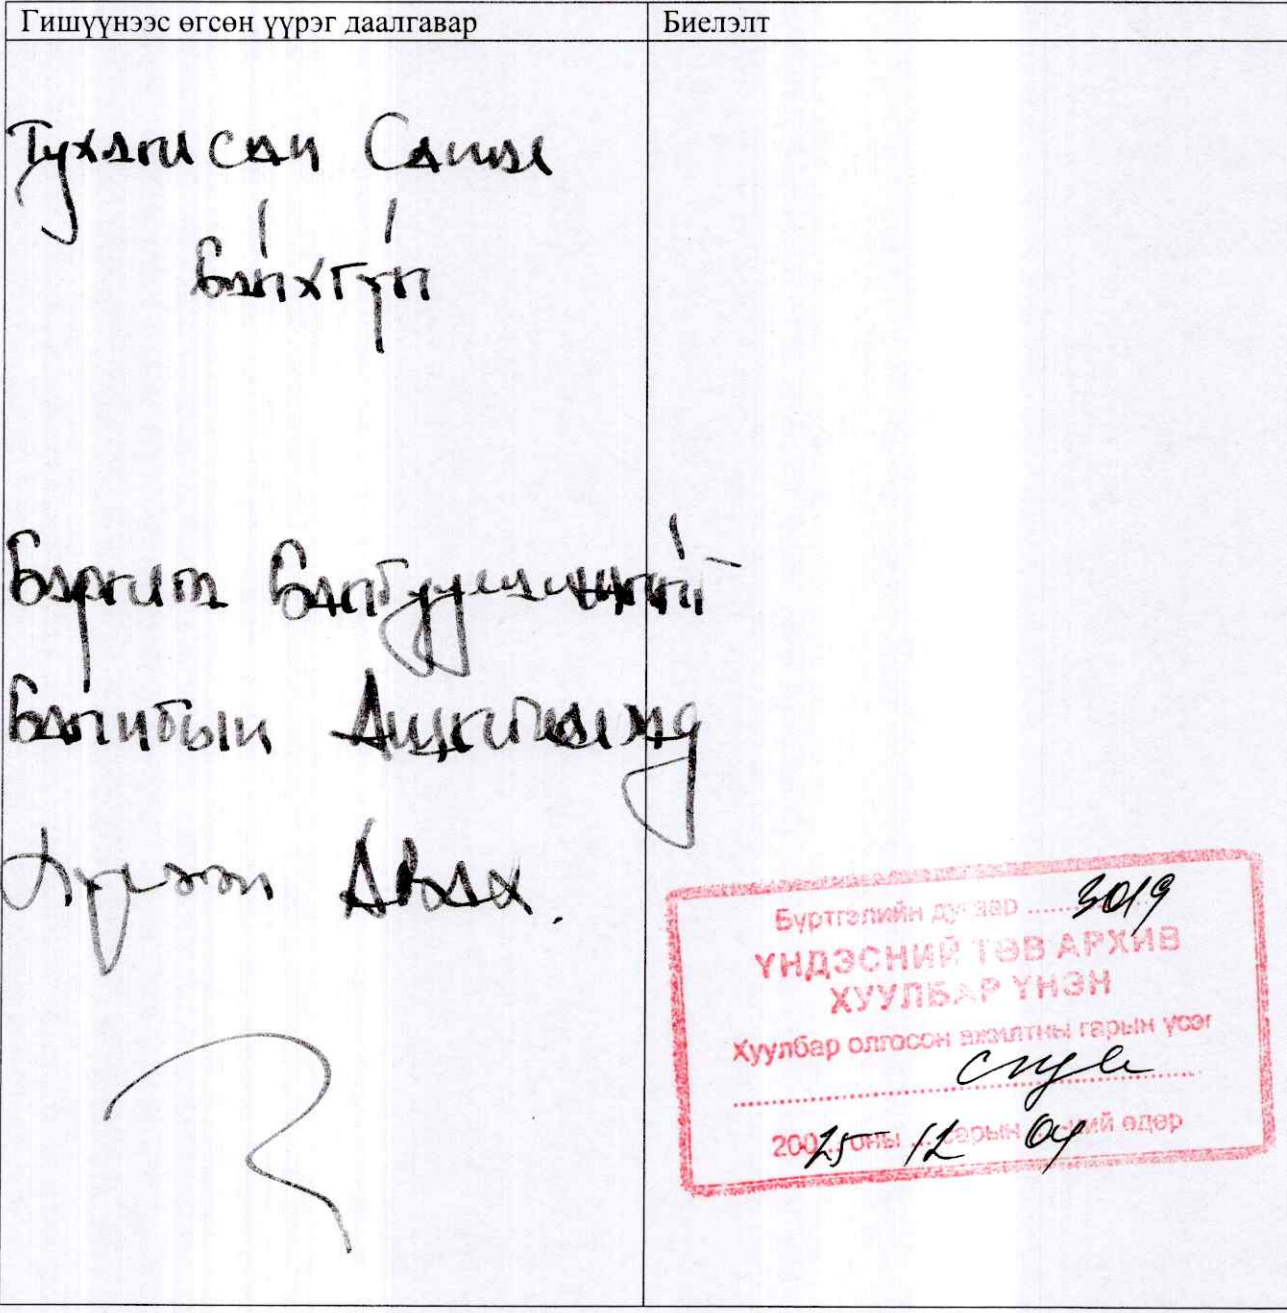 Гишүүнээс өгсөн үүрэг даалгавар
Биелэлт
Тухайлсан Санал
Байхгүй
Барилга Байгууламжийг
Бай Ашиглалтад
Хүлээн Авах.
Бүртгэлийн дугаар ........ 3019
ҮНДЭСНИЙ ТӨВ АРХИВ
ХУУЛБАР ҮНЭН
Хуулбар олгосон ажилтны гарын үсэг
200 25 оны 12 сарын 04 ний өдөр